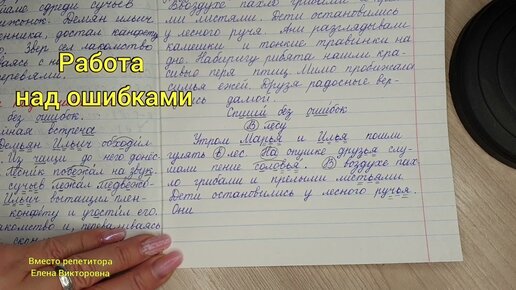 Работа
над ошибками
сдреди сучьев
Демян ильич
достал канфету
Звер сел лакомство
деревями.
без ошибок.
встреча
Демьян Ильич обходил
Из чащи до него донес
Лесник побежал на звук.
сучьев лежал медвежо-
Ильич вытащил плен-
конфету и угостил его.
лакомство и, переваливаясь
Воздухе пахло грибами и
ми листями. Дети остановились
у лесного ручя. Ани разглядывали
камешки и тонкие травинки на
дна. Набиригу ривята нашли кра-
сивыю перя птиц. Мимо пробижала
семья ежей. Крузя радосные вер-
лись дамой.
Спиши без ошибок
В лесу
Утром Марья и Илья пошли
гулять в лес. На опушке друзья слу-
шали пение соловья. В воздухе пах-
ло грибами и прелыми листьями.
Дети остановились у лесного ручья.
Они
Вместо репетитора
Елена Викторовна